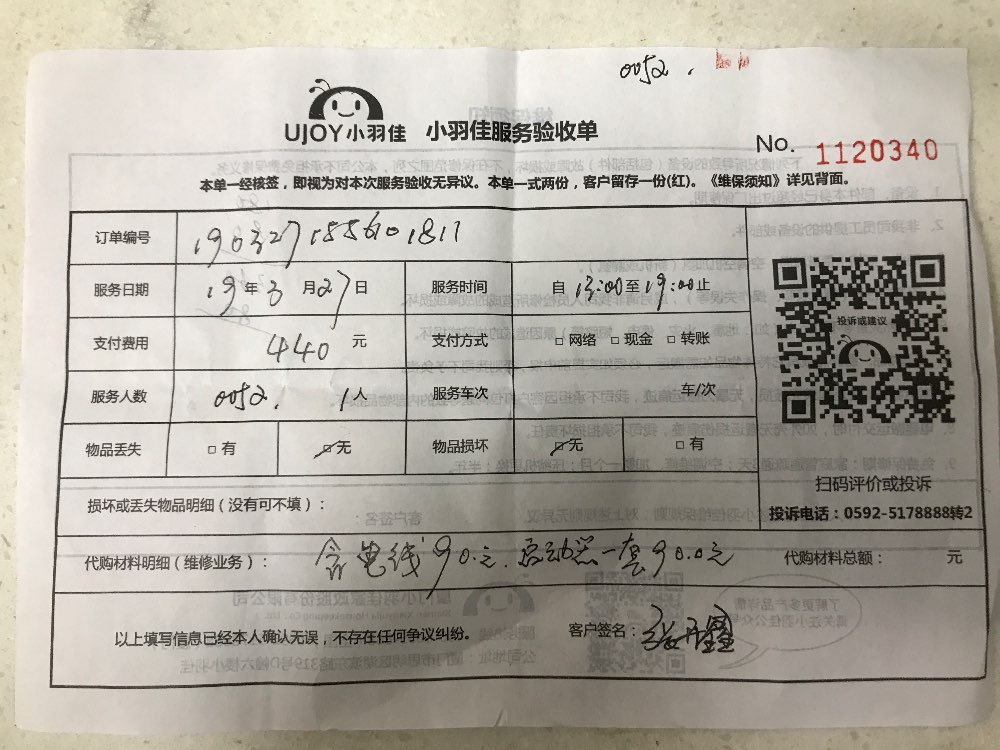 0052.
UJOY小羽佳 小羽佳服务验收单
No. 1120340
本单一经核签，即视为对本次服务验收无异议。本单一式两份，客户留存一份(红)。《维保须知》详见背面。
订单编号 1903271556101811
服务日期 19年3月27日 服务时间 自13:00至19:00止
支付费用 440元 支付方式 □网络 □现金 □转账
投诉或建议
服务人数 0052. 1人 服务车次 车/次
物品丢失 □有 □无 物品损坏 □无 □有
扫码评价或投诉
损坏或丢失物品明细（没有可不填）：
投诉电话：0592-5178888转2
代购材料明细（维修业务）：含电线90.元.启动器一套90.0元 代购材料总额： 元
以上填写信息已经本人确认无误，不存在任何争议纠纷。 客户签名：